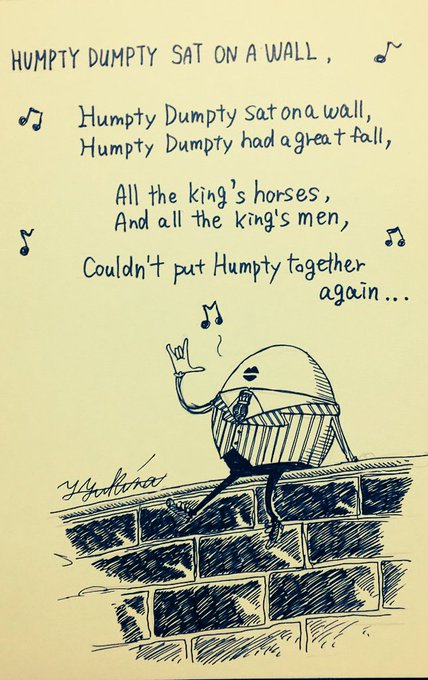 HUMPTY DUMPTY SAT ON A WALL,
Humpty Dumpty sat on a wall,
Humpty Dumpty had a great fall,
All the king's horses,
And all the king's men,
Couldn't put Humpty together
again...